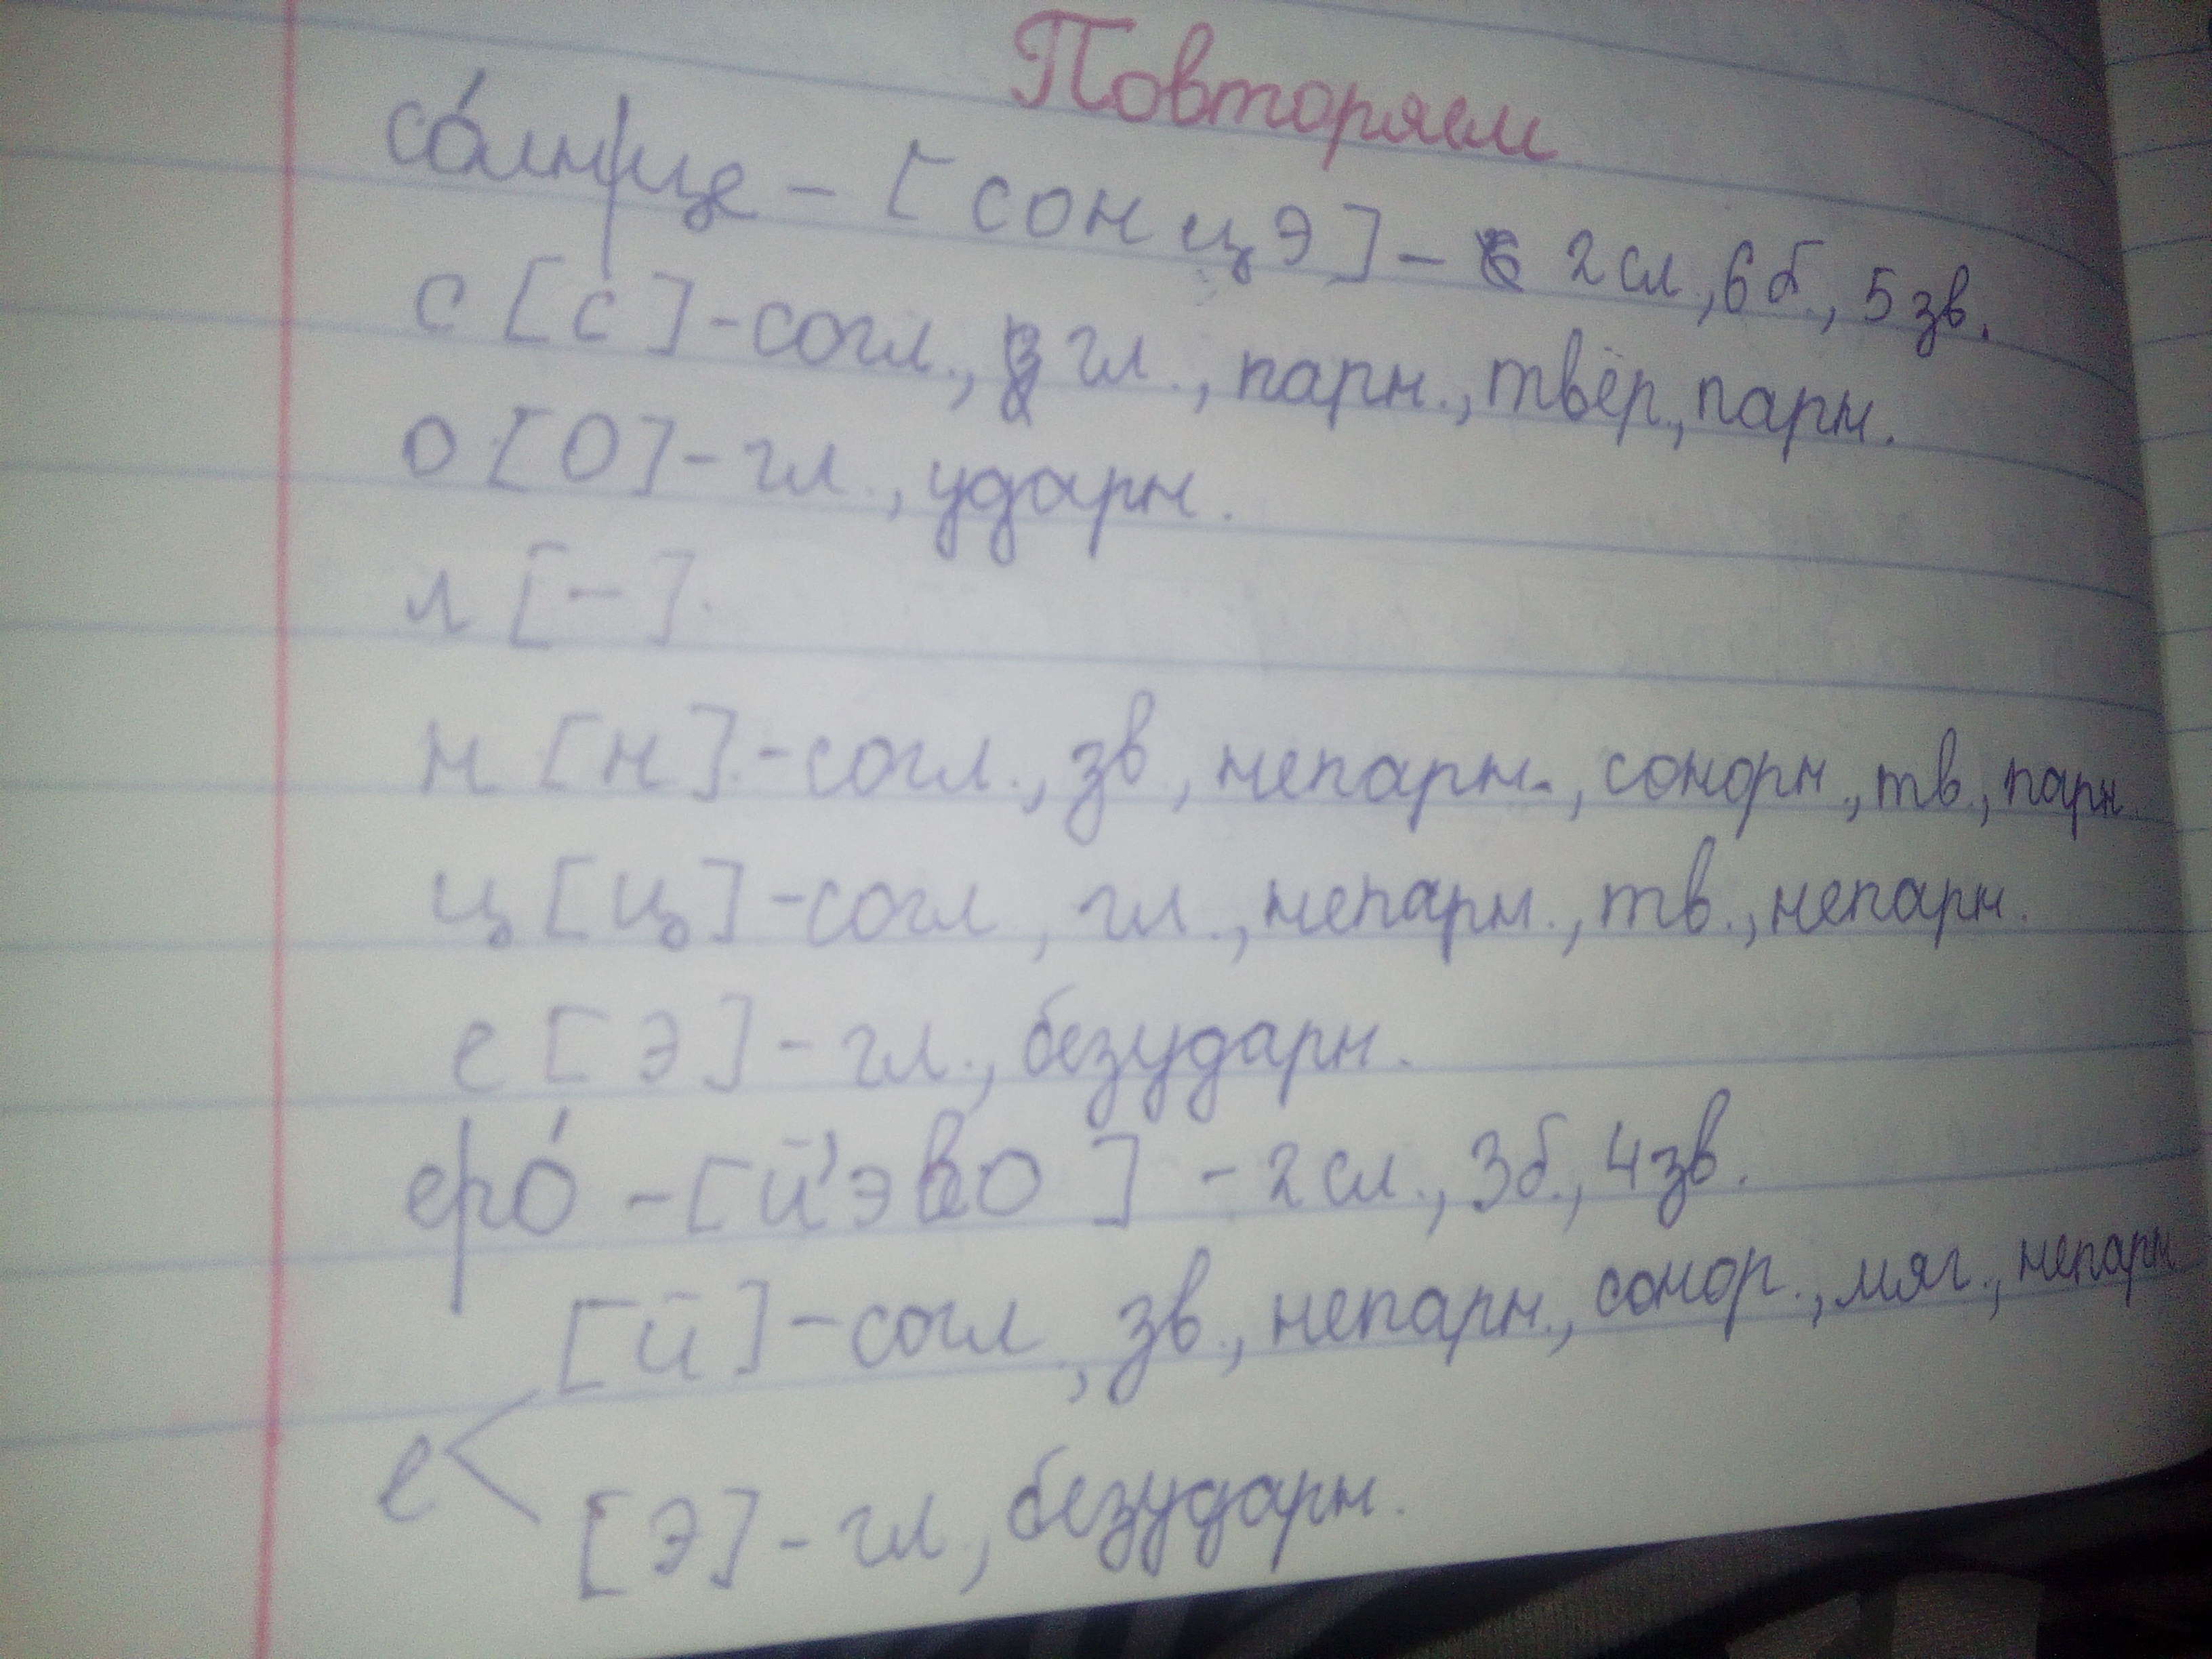 Повторяем
со́лн|це - [сонцэ] - 2 сл., 6 б., 5 зв.
с [с] - согл., гл., парн., твёр., парн.
о [о] - гл., ударн.
л [-].
н [н] - согл., зв., непарн., сонорн., тв., парн.
ц [ц] - согл., гл., непарн., тв., непарн.
е [э] - гл., безударн.
е|го́ - [й'эво] - 2 сл., 3 б., 4 зв.
[й] - согл., зв., непарн., сонор., мяг., непарн
е <
[э] - гл, безударн.